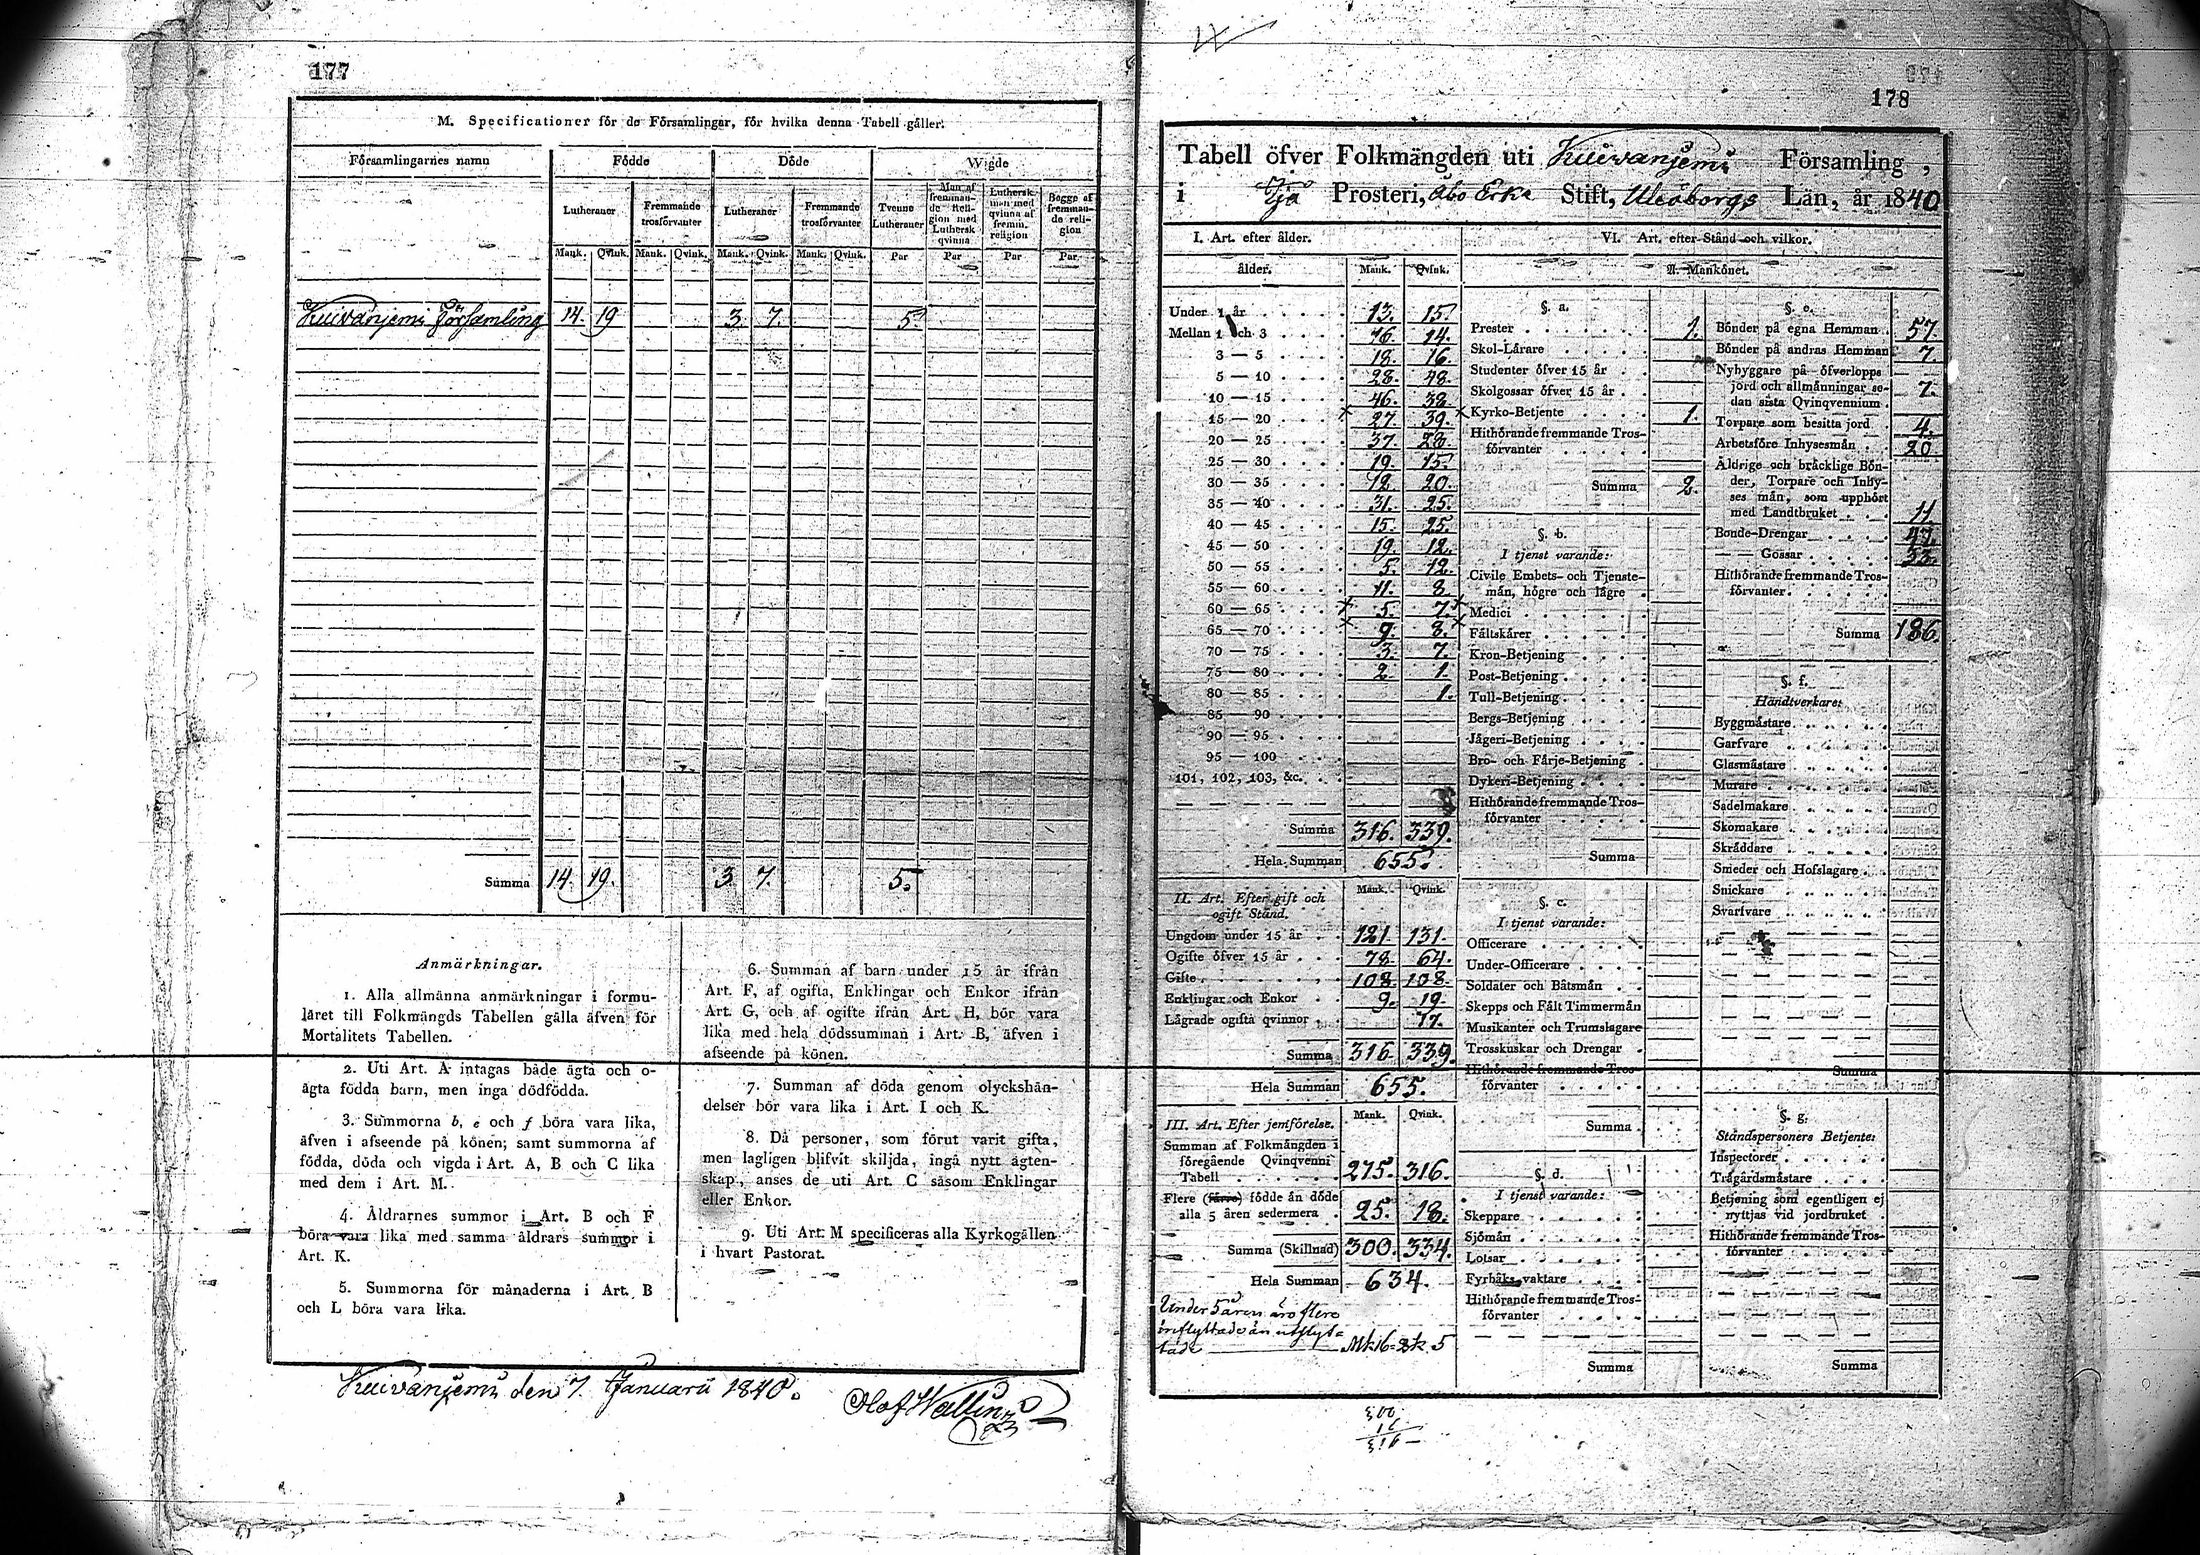 177
M. Specificationer för de Församlingar, för hvilka denna Tabell gäller.
Församlingarnes namn
Födde
Döde
Wigde
Lutheraner
Fremmande trosförvanter
Lutheraner
Fremmande trosförvanter
Tvenne Lutheraner
Man af fremmande Religion med Luthersk qvinna
Luthersk man med qvinna af fremm. religion
Begge af fremmande religion
Mank. Qvink. Mank. Qvink. Mank. Qvink. Mank. Qvink. Par Par Par Par
Kuivanjemi Församling 14. 19 3. 7. 5.
Summa 14. 19. 3 7. 5.
Anmärkningar.
1. Alla allmänna anmärkningar i formu-
läret till Folkmängds Tabellen gälla äfven för
Mortalitets Tabellen.
2. Uti Art. A intagas både ägta och o-
ägta födda barn, men inga dödfödda.
3. Summorna b, e och f böra vara lika,
äfven i afseende på könen; samt summorna af
födda, döda och vigda i Art. A, B och C lika
med dem i Art. M.
4. Åldrarnes summor i Art. B och F
böra vara lika med samma åldrars summor i
Art. K.
5. Summorna för månaderna i Art. B
och L böra vara lika.
6. Summan af barn under 15 år ifrån
Art. F, af ogifta, Enklingar och Enkor ifrån
Art. G, och af ogifte ifrån Art. H, bör vara
lika med hela dödssumman i Art. B, äfven i
afseende på könen.
7. Summan af döda genom olyckshän-
delser bör vara lika i Art. I och K.
8. Då personer, som förut varit gifta,
men lagligen blifvit skiljda, ingå nytt ägten-
skap, anses de uti Art. C såsom Enklingar
eller Enkor.
9. Uti Art. M specificeras alla Kyrkogällen
i hvart Pastorat.
Kuivanjemi den 7. Januarii 1840.
Olof Wallin
178
Tabell öfver Folkmängden uti Kuivanjemi Församling,
i Ijo Prosteri, Åbo Erke Stift, Uleåborgs Län, år 1840
I. Art. efter ålder.
ålder. Mank. Qvink.
Under 1 år 13. 15.
Mellan 1 och 3 16. 14.
3 — 5 18. 16.
5 — 10 28. 48.
10 — 15 46. 38.
15 — 20 27. 39.
20 — 25 37. 28.
25 — 30 19. 15.
30 — 35 12. 20.
35 — 40 31. 25.
40 — 45 15. 25.
45 — 50 19. 12.
50 — 55 5. 12.
55 — 60 11. 8.
60 — 65 5. 7.
65 — 70 9. 8.
70 — 75 3. 7.
75 — 80 2 1.
80 — 85 1.
85 — 90
90 — 95
95 — 100
101, 102, 103, &c.
Summa 316. 339.
Hela Summan 655.
II. Art. Efter gift och
ogift Stånd. Mank. Qvink.
Ungdom under 15 år 121. 131.
Ogifte öfver 15 år 78. 64.
Gifte 108. 108.
Enklingar och Enkor 9. 19.
Lägrade ogifta qvinnor 17.
Summa 316 339.
Hela Summan 655.
III. Art. Efter jemförelse. Mank. Qvink.
Summan af Folkmängden i
föregående Qvinqvenni
Tabell 275. 316.
Flere (färre) födde än döde
alla 5 åren sedermera 25. 18.
Summa (Skillnad) 300. 334.
Hela Summan 634.
Under 5 åren äro flere
inflyttade än utflyt-
tade Mk 16 5
300
16
316
VI. Art. efter Stånd och vilkor.
A. Mankönet.
§. a.
Prester 1.
Skol-Lärare
Studenter öfver 15 år
Skolgossar öfver 15 år
Kyrko-Betjente 1.
Hithörande fremmande Tros-
förvanter
Summa 2.
§. b.
I tjenst varande:
Civile Embets- och Tjenste-
män, högre och lägre
Medici
Fältskärer
Kron-Betjening
Post-Betjening
Tull-Betjening
Bergs-Betjening
Jägeri-Betjening
Bro- och Färje-Betjening
Dykeri-Betjening
Hithörande fremmande Tros-
förvanter
Summa
§. c.
I tjenst varande:
Officerare
Under-Officerare
Soldater och Båtsmän
Skepps och Fält Timmermän
Musikanter och Trumslagare
Trosskuskar och Drengar
Hithörande fremmande Tros-
förvanter
Summa
§. d.
I tjenst varande:
Skeppare
Sjömän
Lotsar
Fyrbåks vaktare
Hithörande fremmande Tros-
förvanter
Summa
§. e.
Bönder på egna Hemman 57.
Bönder på andras Hemman 7.
Nybyggare på öfverlopps
jord och allmänningar se-
dan sista Qvinqvennium 7.
Torpare som besitta jord 4.
Arbetsföre Inhysesmän 20.
Åldrige och bräcklige Bön-
der, Torpare och Inhy-
ses män, som upphört
med Landtbruket 11.
Bonde-Drengar 47.
— — Gossar 33.
Hithörande fremmande Tros-
förvanter
Summa 186.
§. f.
Handtverkare:
Byggmästare
Garfvare
Glasmästare
Murare
Sadelmakare
Skomakare
Skräddare
Smeder och Hofslagare
Snickare
Svarfvare
Summa
§. g.
Ståndspersoners Betjente:
Inspectorer
Trägårdsmästare
Betjening som egentligen ej
nyttjas vid jordbruket
Hithörande fremmande Tros-
förvanter
Summa